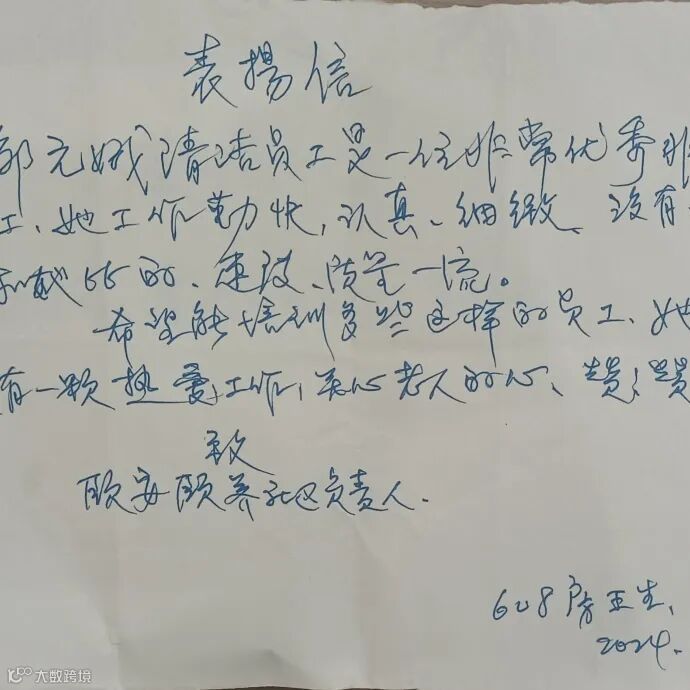 表揚信
郭元娥清洁员工是一位非常优秀
工、她工作勤快，认真、细緻、没有
的、速度、质量一流。
希望能培训多些这样的员工、她
有一颗热爱工作，关心老人的心、赞，赞
致
颐安颐养社区负责人.
608房王生，
2024.
大数跨境